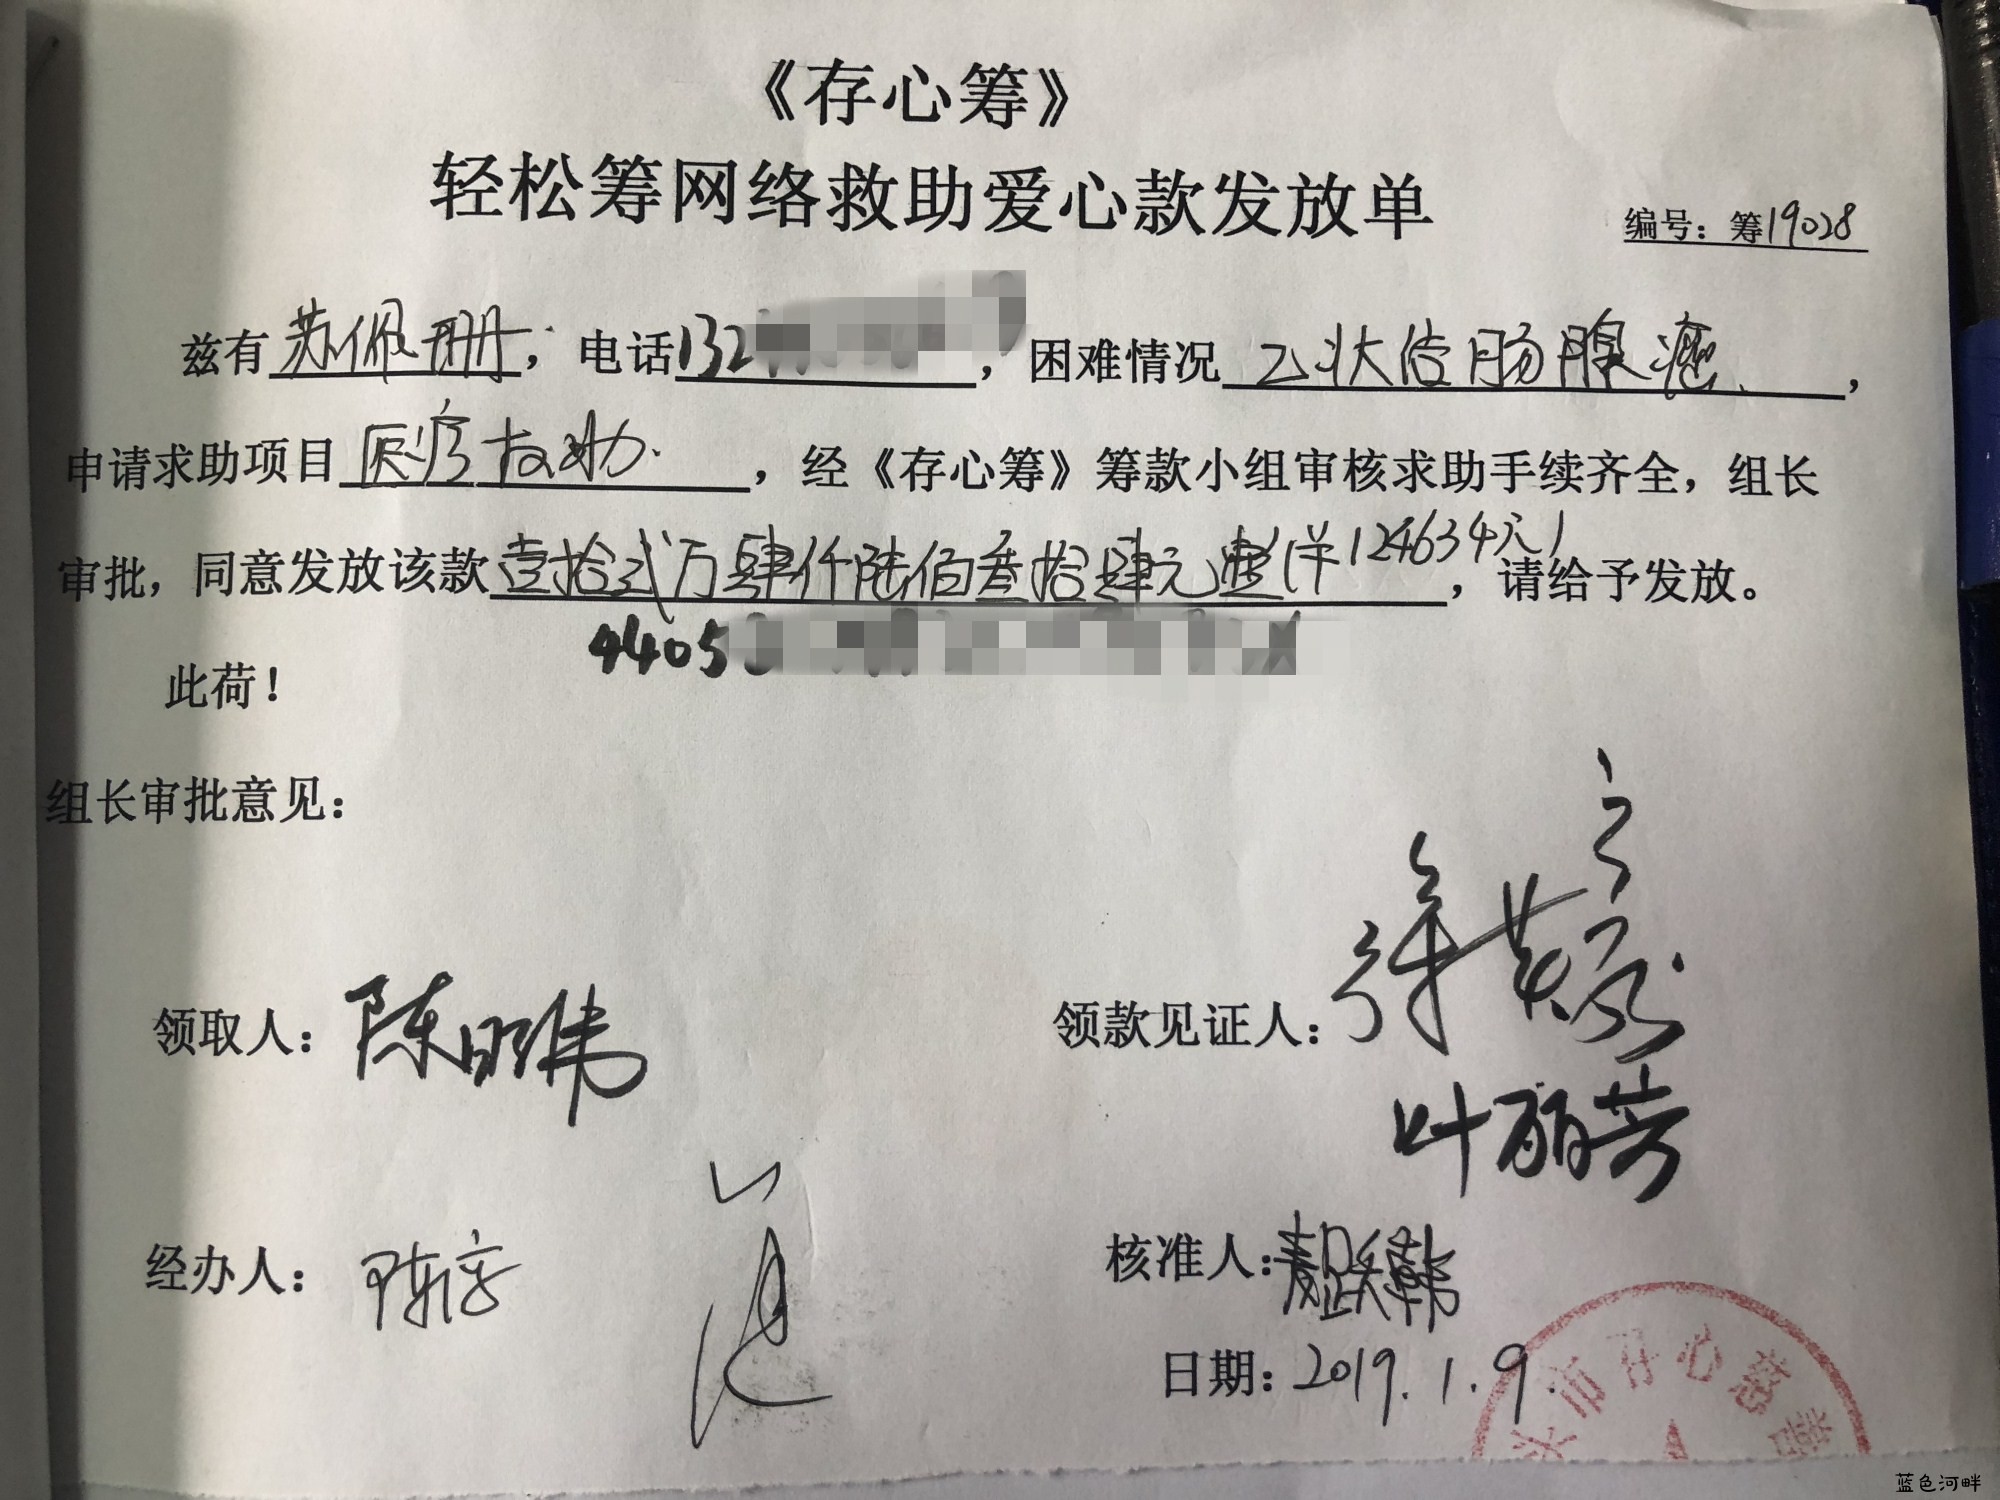 《存心筹》
轻松筹网络救助爱心款发放单
编号：筹19028
兹有苏佩珊，电话132，困难情况乙状结肠腺癌，
申请求助项目医疗救助，经《存心筹》筹款小组审核求助手续齐全，组长
审批，同意发放该款壹拾贰万肆仟陆佰叁拾肆元整(¥124634元)，请给予发放。
4405
此荷！
组长审批意见：
领取人：陈明伟
领款见证人：
叶丽芳
经办人：陈
核准人：
日期：2019.1.9.
头市存心慈善
蓝色河畔